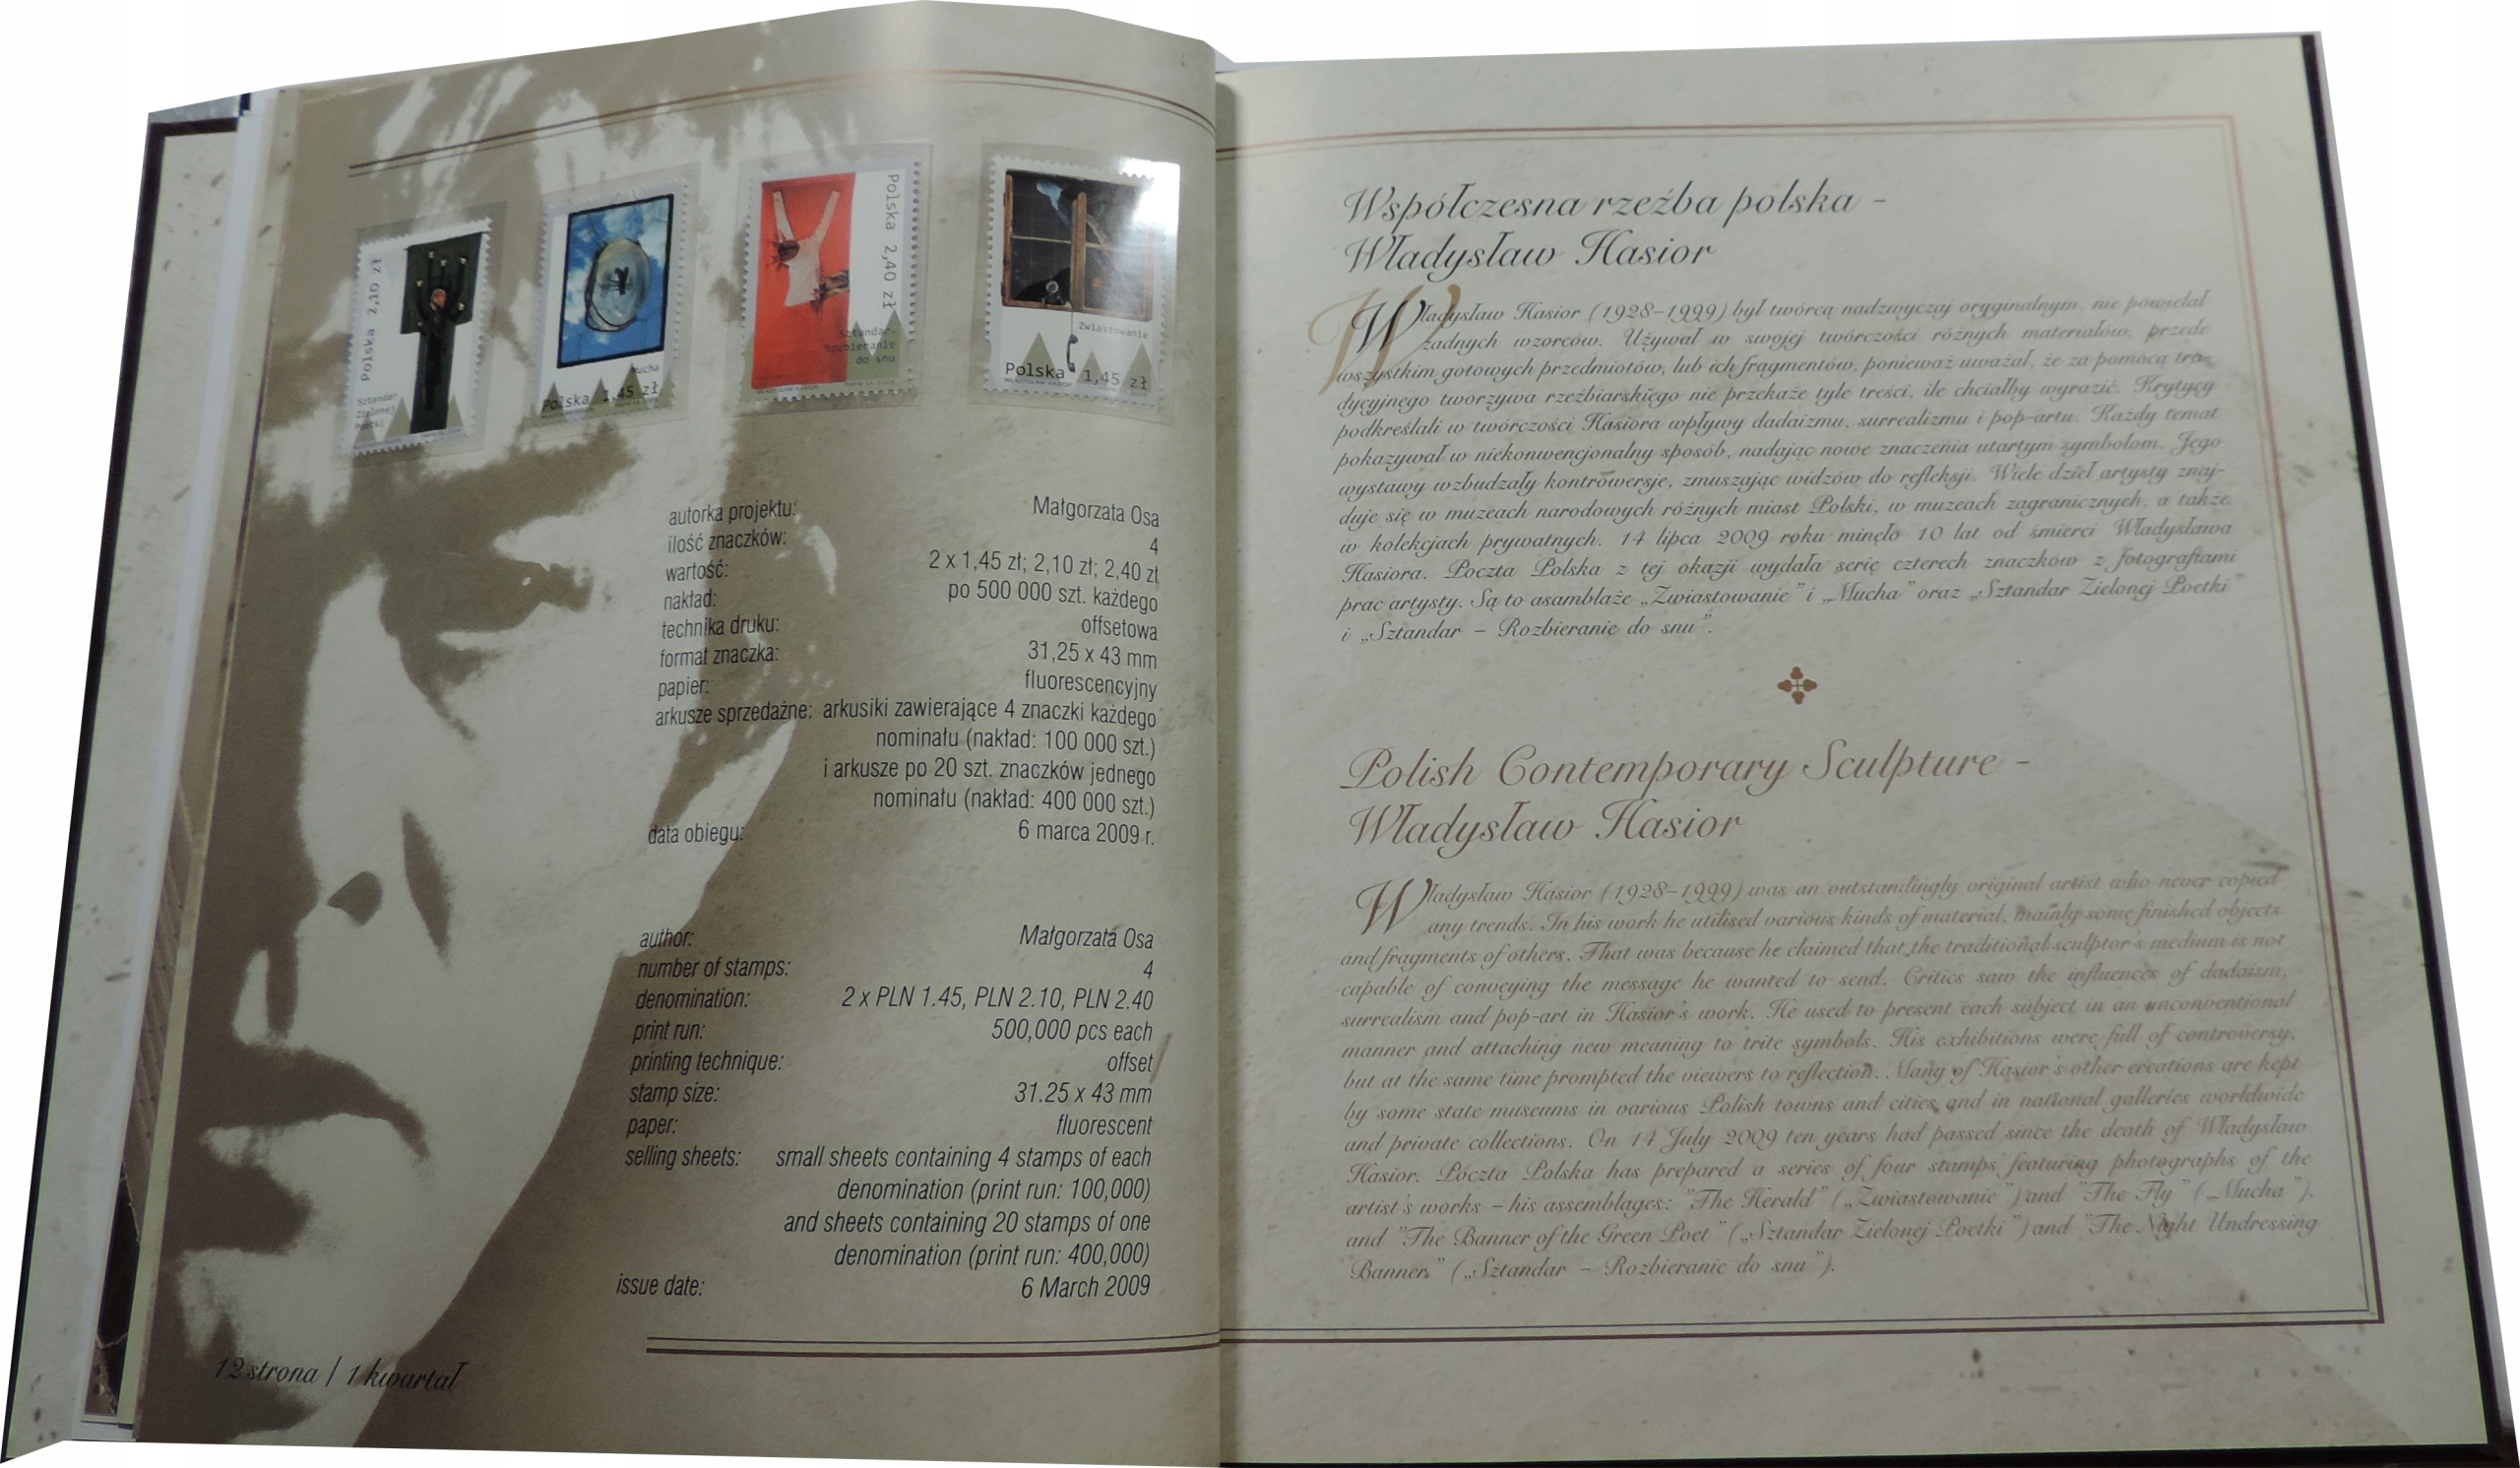 Polska 2,10 zł
Sztandar
Zielonej
Poetki
Mucha
Polska 1,45 zł
Polska 2,40 zł
Sztandar-
Rozbieranie
do snu
Zwiastowanie
Polska 1,45 zł
autorka projektu: Małgorzata Osa
ilość znaczków: 4
wartość: 2 x 1,45 zł; 2,10 zł; 2,40 zł
nakład: po 500 000 szt. każdego
technika druku: offsetowa
format znaczka: 31,25 x 43 mm
papier: fluorescencyjny
arkusze sprzedażne: arkusiki zawierające 4 znaczki każdego
nominału (nakład: 100 000 szt.)
i arkusze po 20 szt. znaczków jednego
nominału (nakład: 400 000 szt.)
data obiegu: 6 marca 2009 r.
author: Małgorzata Osa
number of stamps: 4
denomination: 2 x PLN 1.45, PLN 2.10, PLN 2.40
print run: 500,000 pcs each
printing technique: offset
stamp size: 31.25 x 43 mm
paper: fluorescent
selling sheets: small sheets containing 4 stamps of each
denomination (print run: 100,000)
and sheets containing 20 stamps of one
denomination (print run: 400,000)
issue date: 6 March 2009
12 strona | 1 kwartał
Współczesna rzeźba polska -
Władysław Hasior
Władysław Hasior (1928-1999) był twórcą nadzwyczaj oryginalnym, nie powielał
żadnych wzorców. Używał w swojej twórczości różnych materiałów, przede
wszystkim gotowych przedmiotów, lub ich fragmentów, ponieważ uważał, że za pomocą tra-
dycyjnego tworzywa rzeźbiarskiego nie przekaże tyle treści, ile chciałby wyrazić. Krytycy
podkreślali w twórczości Hasiora wpływy dadaizmu, surrealizmu i pop-artu. Każdy temat
pokazywał w niekonwencjonalny sposób, nadając nowe znaczenia utartym symbolom. Jego
wystawy wzbudzały kontrowersje, zmuszając widzów do refleksji. Wiele dzieł artysty znaj-
duje się w muzeach narodowych różnych miast Polski, w muzeach zagranicznych, a także
w kolekcjach prywatnych. 14 lipca 2009 roku minęło 10 lat od śmierci Władysława
Hasiora. Poczta Polska z tej okazji wydała serię czterech znaczków z fotografiami
prac artysty. Są to asamblaże „Zwiastowanie” i „Mucha” oraz „Sztandar Zielonej Poetki”
i „Sztandar – Rozbieranie do snu”.
Polish Contemporary Sculpture -
Władysław Hasior
Władysław Hasior (1928-1999) was an outstandingly original artist who never copied
any trends. In his work he utilised various kinds of material, mainly some finished objects
and fragments of others. That was because he claimed that the traditional sculptor's medium is not
capable of conveying the message he wanted to send. Critics saw the influences of dadaism,
surrealism and pop-art in Hasior's work. He used to present each subject in an unconventional
manner and attaching new meaning to trite symbols. His exhibitions were full of controversy,
but at the same time prompted the viewers to reflection. Many of Hasior's other creations are kept
by some state museums in various Polish towns and cities and in national galleries worldwide
and private collections. On 14 July 2009 ten years had passed since the death of Władysław
Hasior. Poczta Polska has prepared a series of four stamps featuring photographs of the
artist's works – his assemblages: "The Herald" („Zwiastowanie") and "The Fly" („Mucha"),
and "The Banner of the Green Poet" („Sztandar Zielonej Poetki") and "The Night Undressing
Banner" („Sztandar – Rozbieranie do snu").